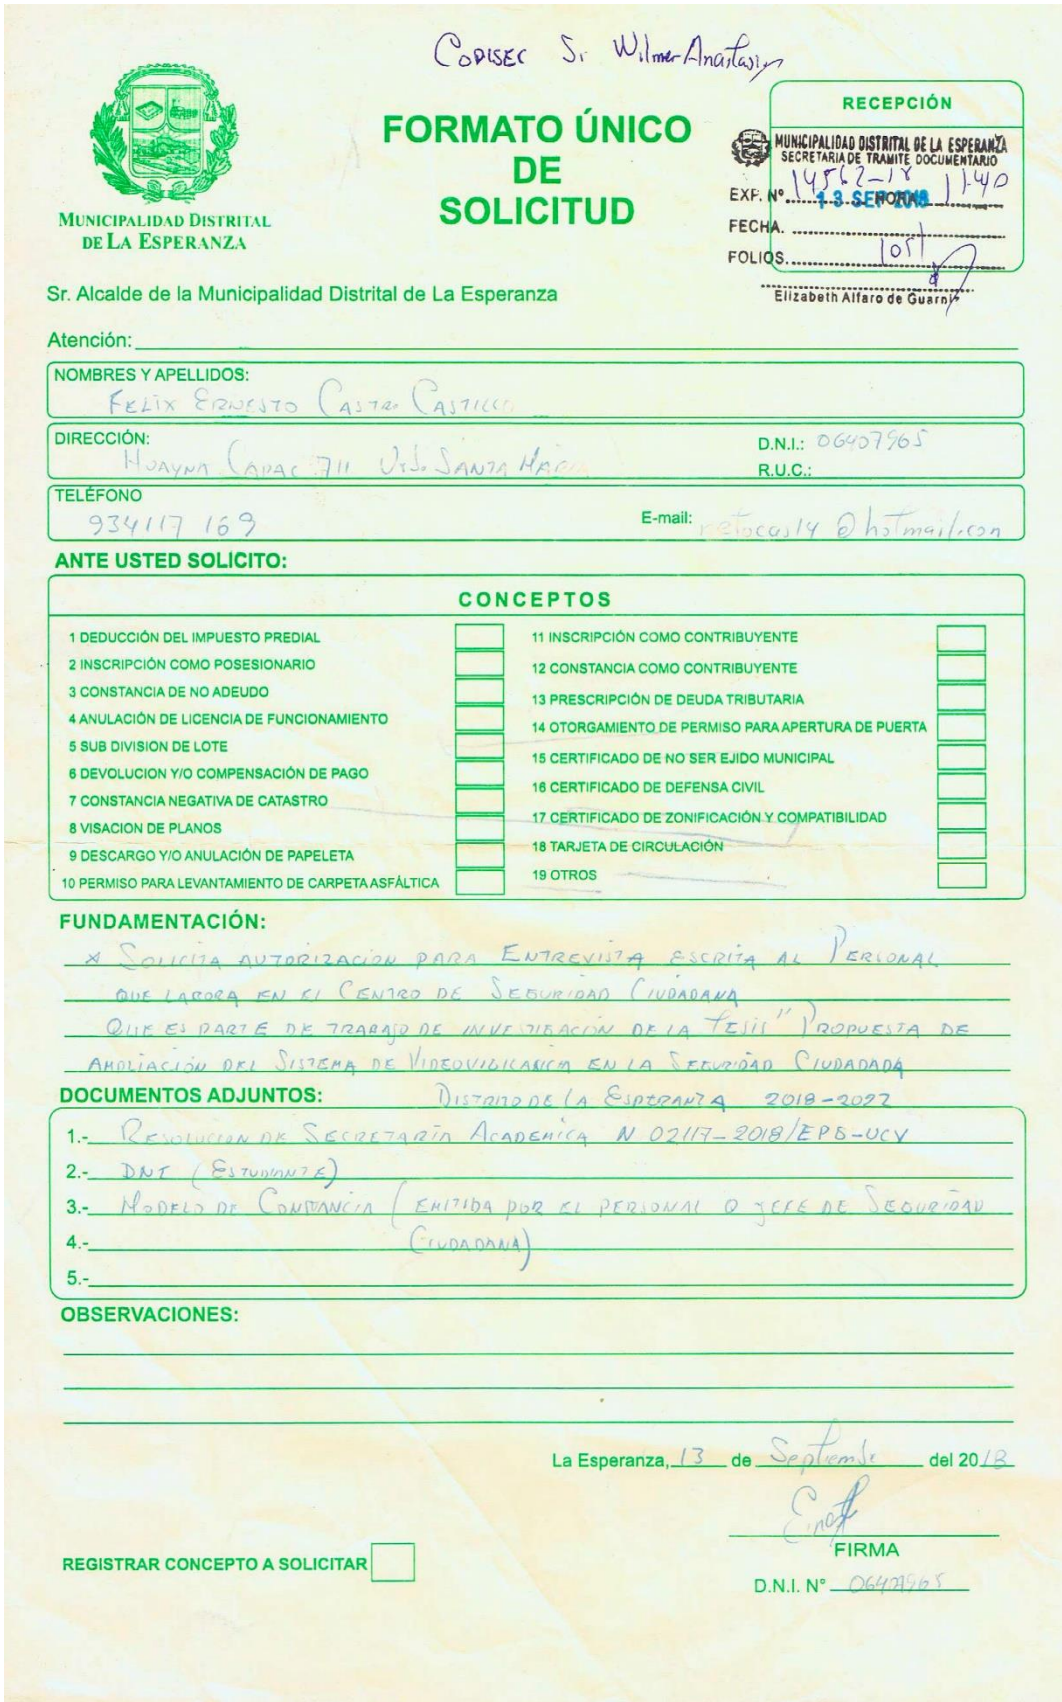 CODISEC Sr Wilmer Anastasio
MUNICIPALIDAD DISTRITAL
DE LA ESPERANZA
FORMATO ÚNICO
DE
SOLICITUD
RECEPCIÓN
MUNICIPALIDAD DISTRITAL DE LA ESPERANZA
SECRETARIA DE TRAMITE DOCUMENTARIO
EXP. Nº 14562-18 HORA 11:40
13 SEP 2018
FECHA.
FOLIOS.
Elizabeth Alfaro de Guarniz
Sr. Alcalde de la Municipalidad Distrital de La Esperanza
Atención:
NOMBRES Y APELLIDOS:
FELIX ERNESTO CASTRO CASTILLO
DIRECCIÓN: D.N.I.: 06407965
HUAYNA CAPAC 711 Urb. SANTA MARIA R.U.C.:
TELÉFONO
934117 169 E-mail: netocas14@hotmail.con
ANTE USTED SOLICITO:
CONCEPTOS
1 DEDUCCIÓN DEL IMPUESTO PREDIAL
2 INSCRIPCIÓN COMO POSESIONARIO
3 CONSTANCIA DE NO ADEUDO
4 ANULACIÓN DE LICENCIA DE FUNCIONAMIENTO
5 SUB DIVISION DE LOTE
6 DEVOLUCION Y/O COMPENSACIÓN DE PAGO
7 CONSTANCIA NEGATIVA DE CATASTRO
8 VISACION DE PLANOS
9 DESCARGO Y/O ANULACIÓN DE PAPELETA
10 PERMISO PARA LEVANTAMIENTO DE CARPETA ASFÁLTICA
11 INSCRIPCIÓN COMO CONTRIBUYENTE
12 CONSTANCIA COMO CONTRIBUYENTE
13 PRESCRIPCIÓN DE DEUDA TRIBUTARIA
14 OTORGAMIENTO DE PERMISO PARA APERTURA DE PUERTA
15 CERTIFICADO DE NO SER EJIDO MUNICIPAL
16 CERTIFICADO DE DEFENSA CIVIL
17 CERTIFICADO DE ZONIFICACIÓN Y COMPATIBILIDAD
18 TARJETA DE CIRCULACIÓN
19 OTROS
FUNDAMENTACIÓN:
* SOLICITA AUTORIZACIÓN PARA ENTREVISTA ESCRITA AL PERSONAL
QUE LABORA EN EL CENTRO DE SEGURIDAD CIUDADANA
QUE ES PARTE DE TRABAJO DE INVESTIGACIÓN DE LA TESIS " PROPUESTA DE
AMPLIACIÓN DEL SISTEMA DE VIDEOVIGILANCIA EN LA SEGURIDAD CIUDADADA
DOCUMENTOS ADJUNTOS: DISTRITO DE LA ESPERANZA 2018-2022
1.- RESOLUCION DE SECRETARÍA ACADEMICA N 02117-2018/EPB-UCV
2.- DNI (ESTUDIANTE)
3.- MODELO DE CONSTANCIA (EMITIDA POR EL PERSONAL O JEFE DE SEGURIDAD
4.- CIUDADANA)
5.-
OBSERVACIONES:
La Esperanza, 13 de Septiembre del 2018
FIRMA
REGISTRAR CONCEPTO A SOLICITAR
D.N.I. Nº 06407965